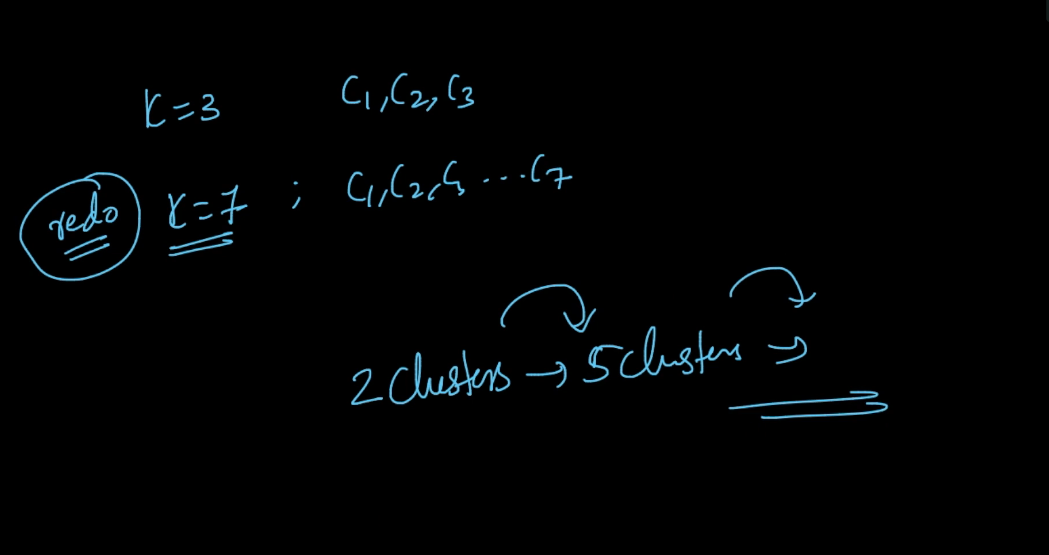 K=3 C1,C2,C3
redo K=7 ; C1,C2,C3...C7
2 Clusters → 5 Clusters →